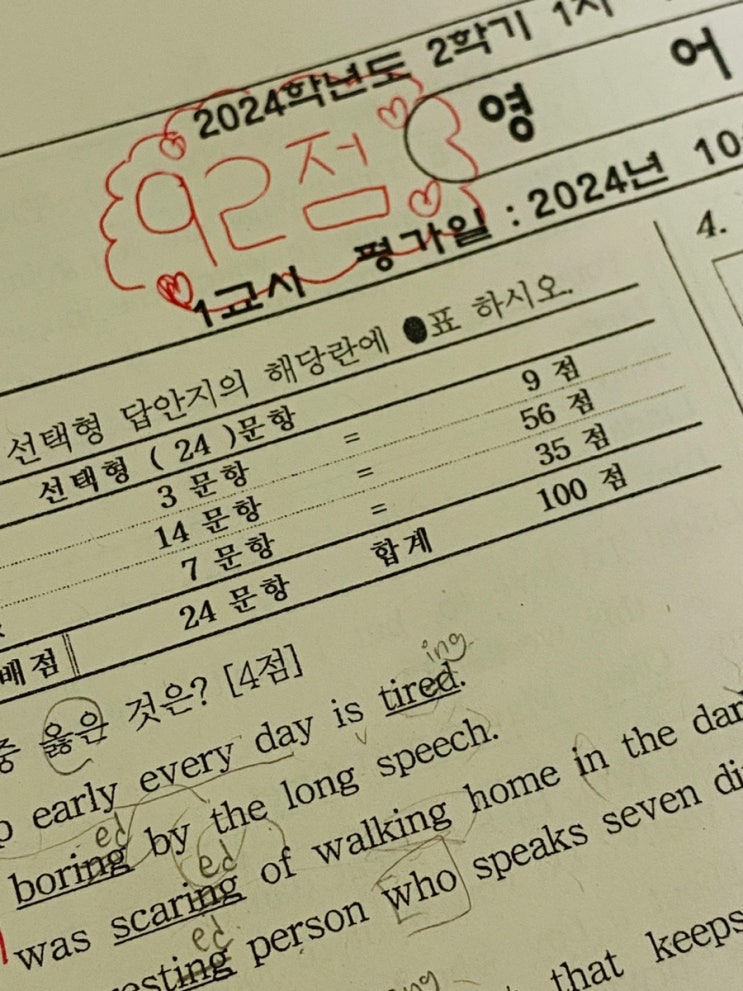 2024학년도 2학기 1차
92점
영 어
1교시 평가일 : 2024년 10
선택형 답안지의 해당란에 ●표 하시오.
선택형 ( 24 )문항
3 문항 = 9 점
14 문항 = 56 점
7 문항 = 35 점
24 문항 합계 100 점
배점
중 옳은 것은? [4점]
ing
early every day is tired.
ed
boring by the long speech.
ed
was scaring of walking home in the dar
ed
esting person who speaks seven di
ing
that keeps
4.